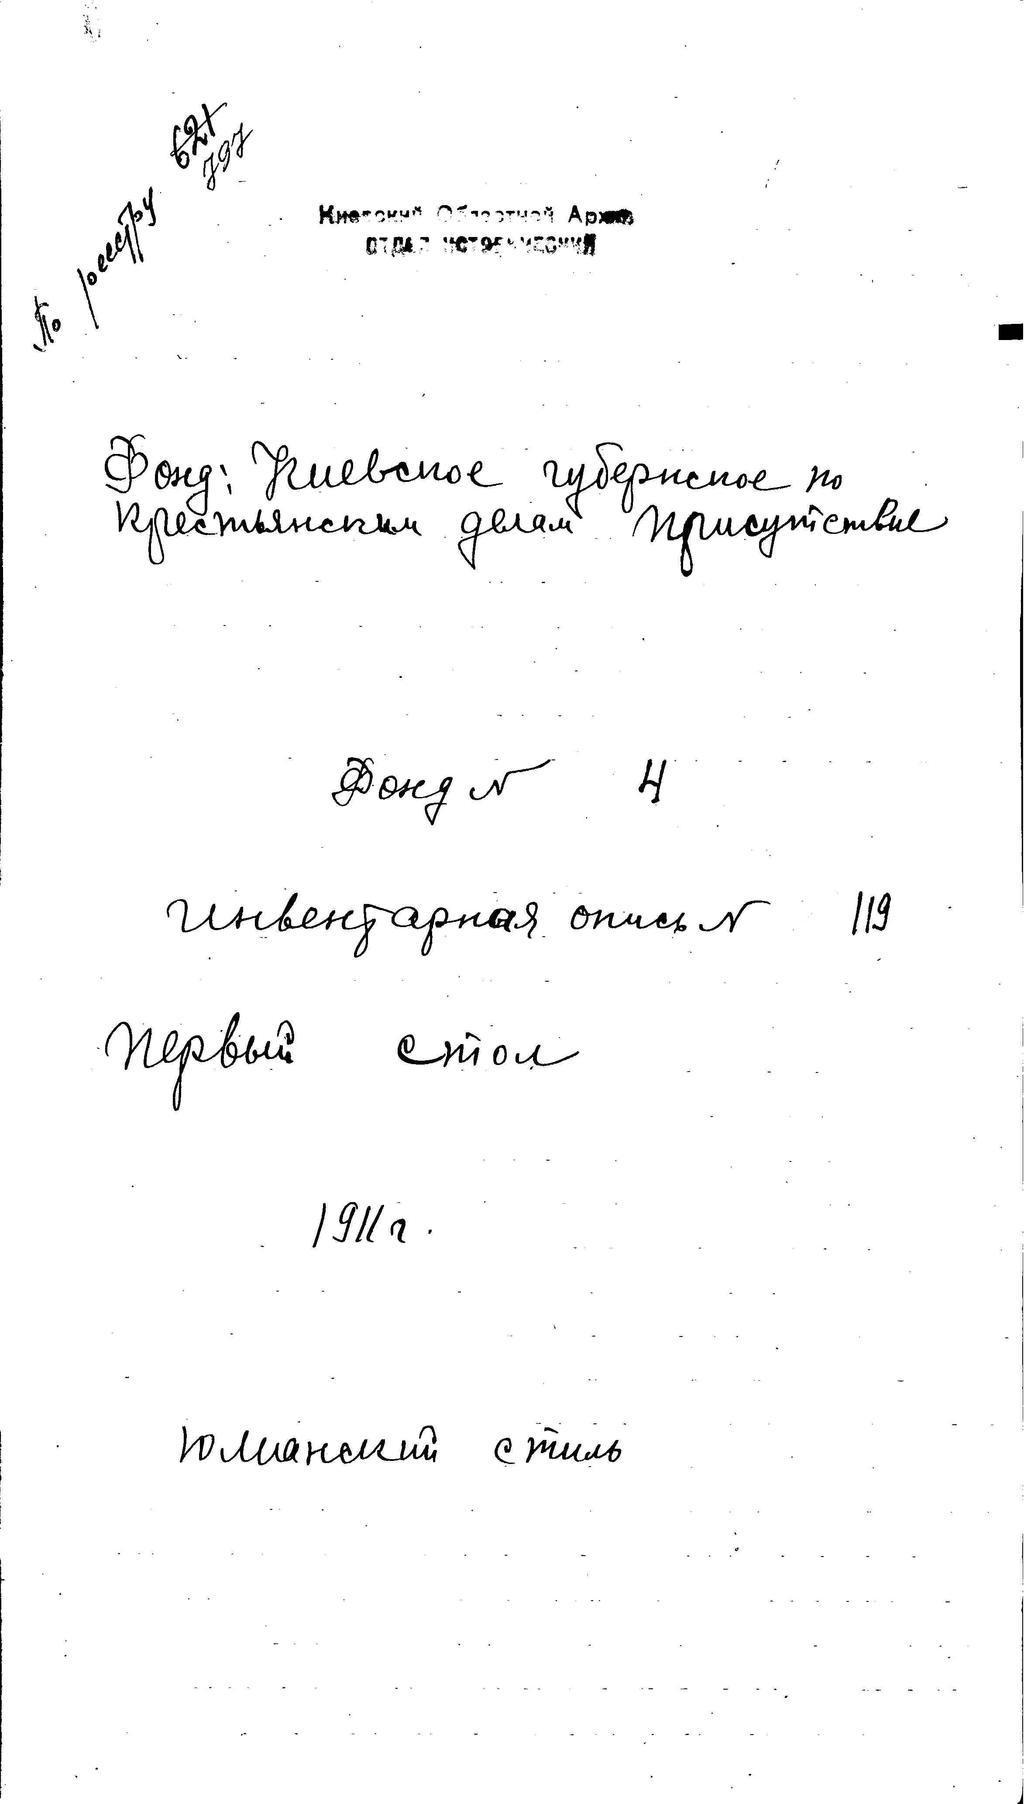 По реестру 621
797
Киевский Областной Архив
ОТДЕЛ ИСТОРИЧЕСКИЙ
Фонд: Киевское губернское по
крестьянским делам Присутствие
Фонд № 4
Инвентарная опись № 119
Первый стол
1911 г.
Юлианский стиль